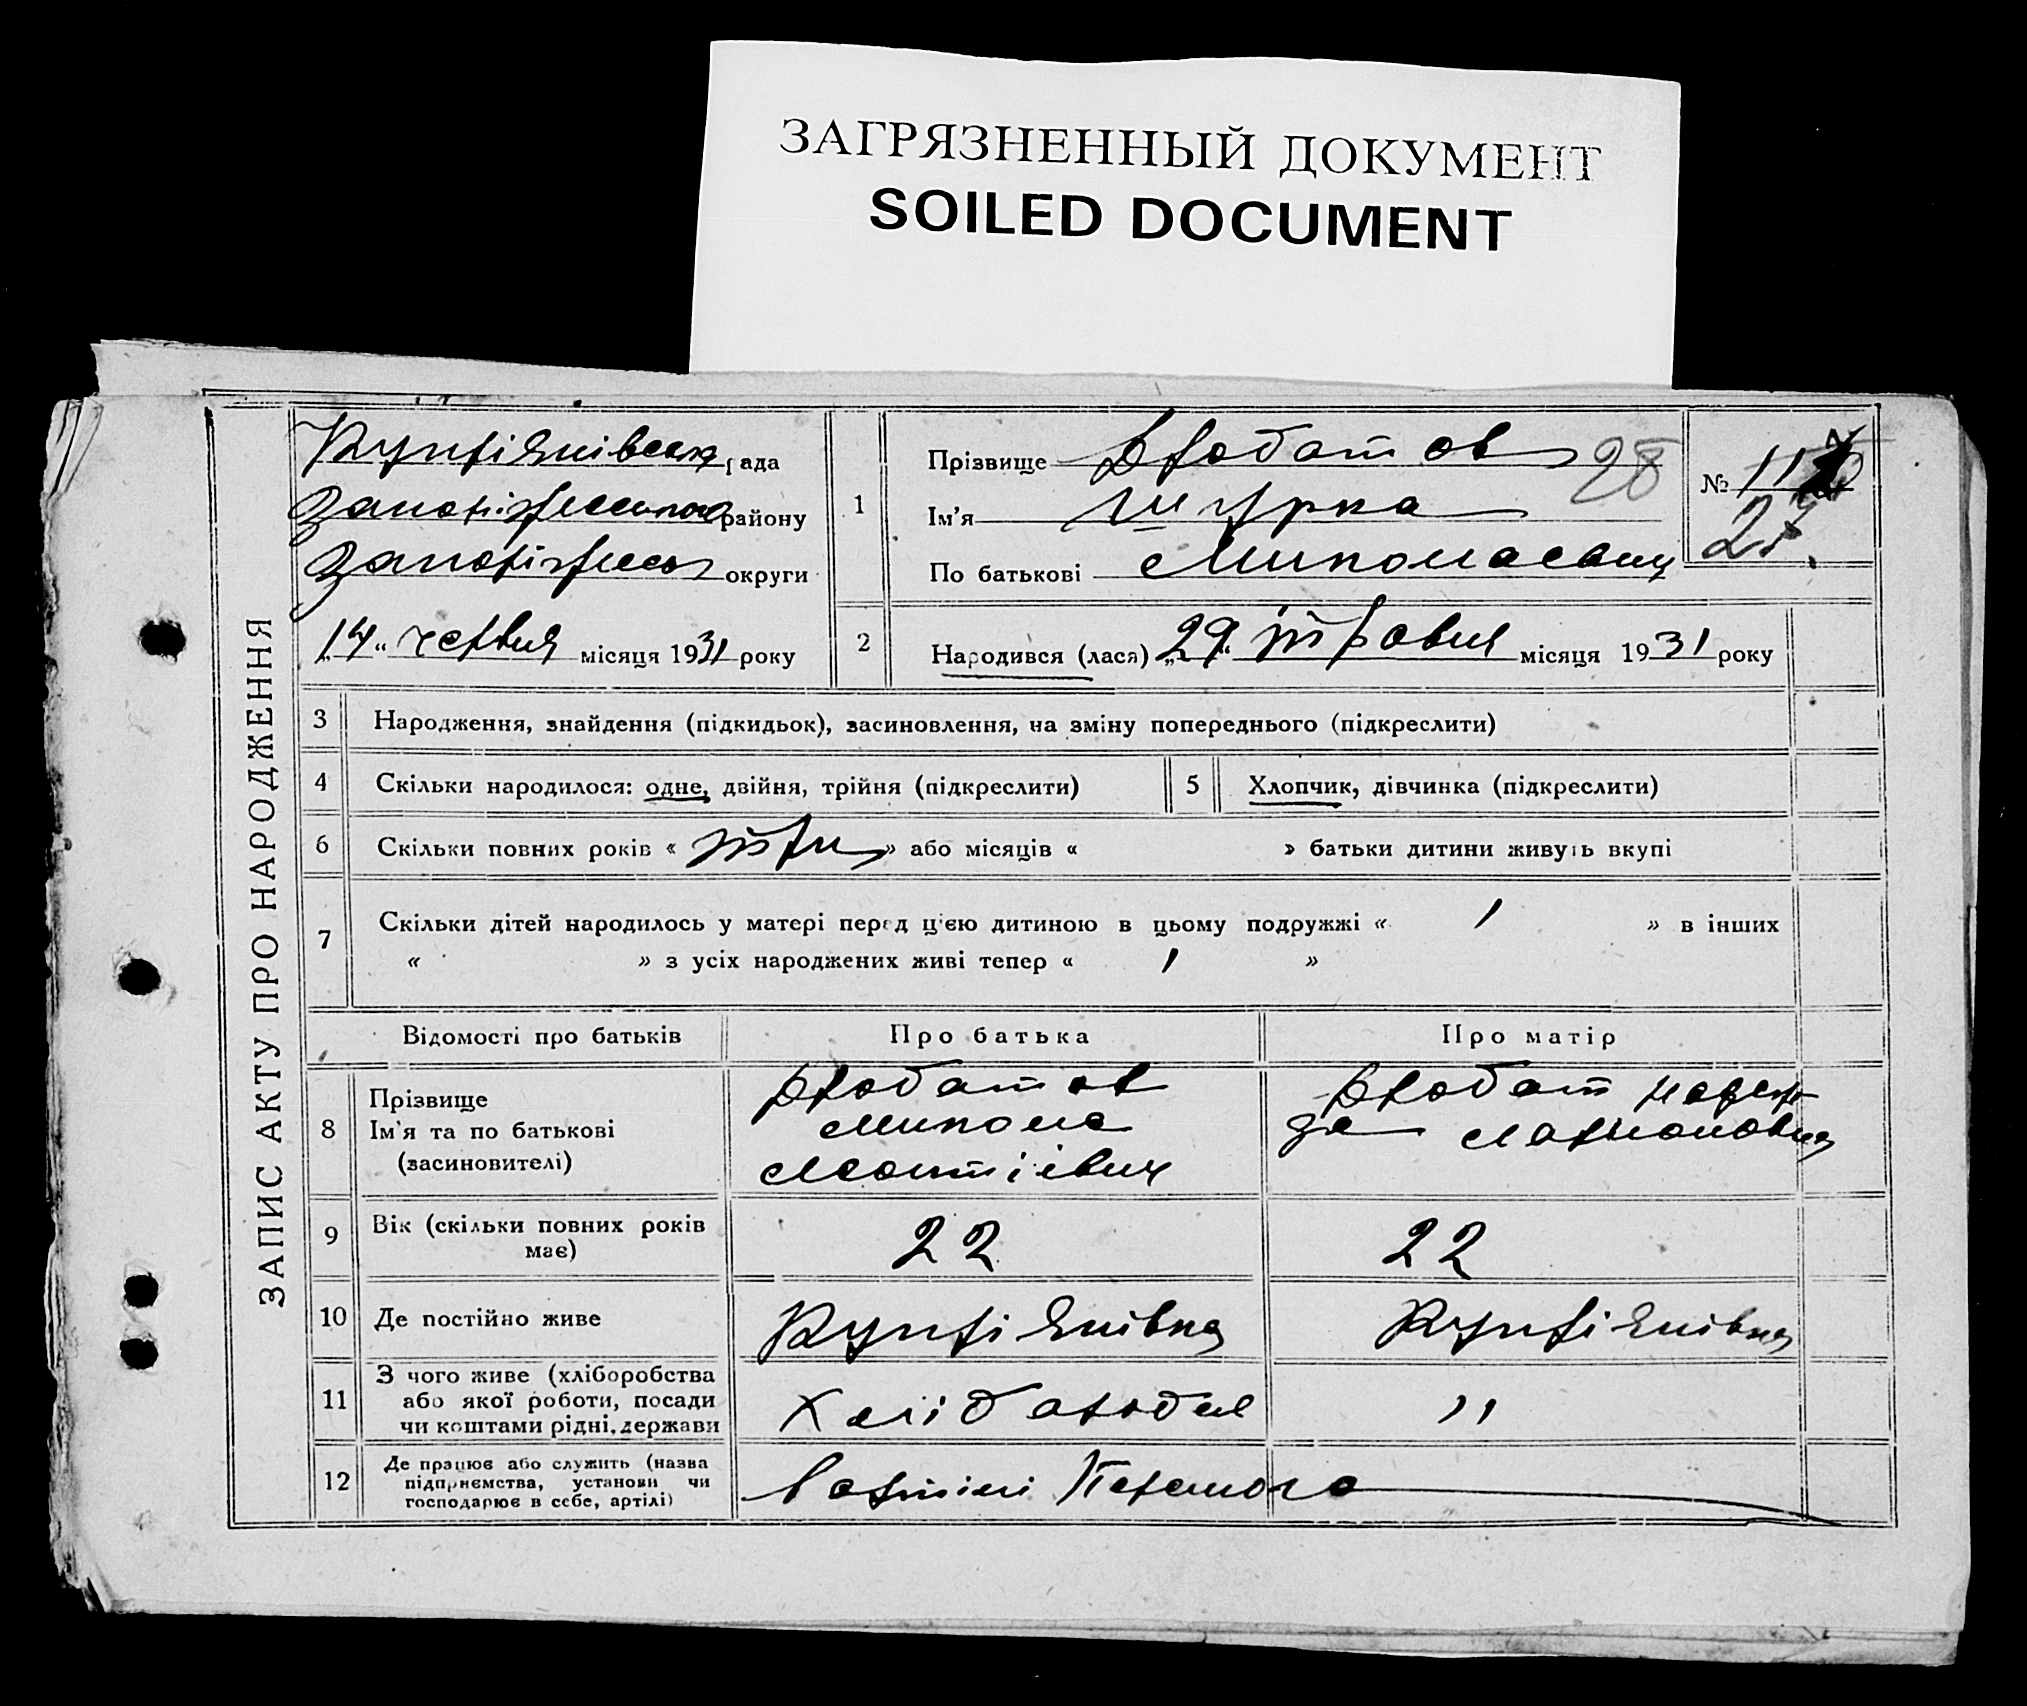 ЗАГРЯЗНЕННЫЙ ДОКУМЕНТ
SOILED DOCUMENT
ЗАПИС АКТУ ПРО НАРОДЖЕННЯ
Купріянівська рада
району
округи
„14“ червня місяця 1931 року
1
Прізвище 28
Ім'я Шурка
По батькові Миколаевич
№ 11
2 Народився (лася) „29“ травня місяця 1931 року
3 Народження, знайдення (підкидьок), засиновлення, на зміну попереднього (підкреслити)
4 Скільки народилося: одне, двійня, трійня (підкреслити) 5 Хлопчик, дівчинка (підкреслити)
6 Скільки повних років « три » або місяців « » батьки дитини живуть вкупі
7 Скільки дітей народилось у матері перед ц'єю дитиною в цьому подружжі « 1 » в інших
« » з усіх народжених живі тепер « 1 »
Відомості про батьків Про батька Про матір
8 Прізвище
Ім'я та по батькові
(засиновителі)
Микола
Надеж
да
9 Вік (скільки повних років має) 22 22
10 Де постійно живе Купріянівка Купріянівка
11 З чого живе (хліборобства
або якої роботи, посади
чи коштами рідні, держави
Хліборобля "
12 Де працює або служить (назва
підприємства, установи чи
господарює в себе, артілі)
в артілі Перемога